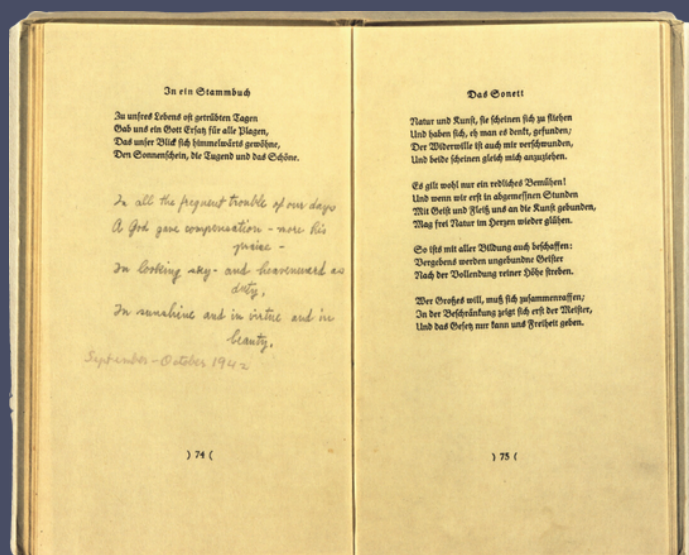 In ein Stammbuch
Zu unsres Lebens oft getrübten Tagen
Gab uns ein Gott Ersatz für alle Plagen,
Das unser Blick sich himmelwärts gewöhne,
Den Sonnenschein, die Tugend und das Schöne.
In all the frequent trouble of our days
A God gave compensation - more his
praise -
In looking sky- and heavenward as
duty,
In sunshine and in virtue and in
beauty.
September - October 1942
) 74 (
Das Sonett
Natur und Kunst, sie scheinen sich zu fliehen
Und haben sich, eh man es denkt, gefunden;
Der Widerwille ist auch mir verschwunden,
Und beide scheinen gleich mich anzuziehen.
Es gilt wohl nur ein redliches Bemühen!
Und wenn wir erst in abgemeßnen Stunden
Mit Geist und Fleiß uns an die Kunst gebunden,
Mag frei Natur im Herzen wieder glühen.
So ists mit aller Bildung auch beschaffen:
Vergebens werden ungebundne Geister
Nach der Vollendung reiner Höhe streben.
Wer Großes will, muß sich zusammenraffen;
In der Beschränkung zeigt sich erst der Meister,
Und das Gesetz nur kann uns Freiheit geben.
) 75 (